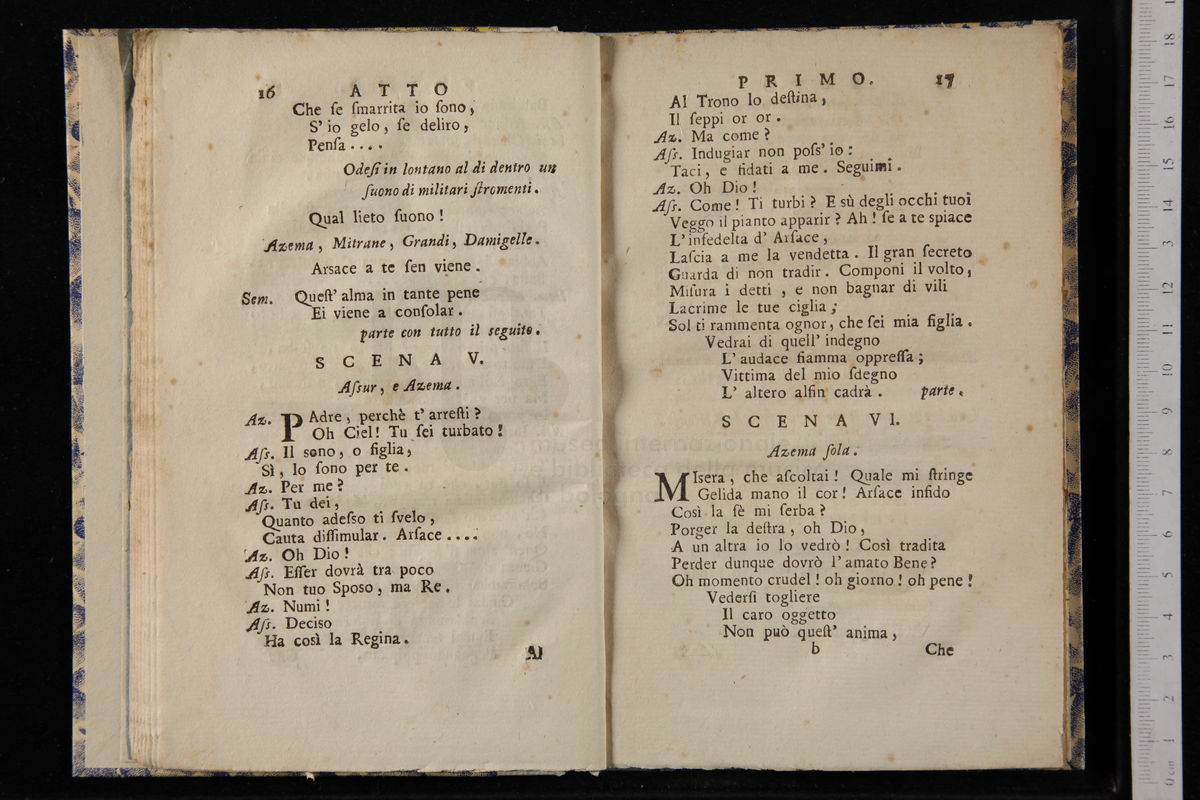 16 ATTO
Che ſe ſmarrita io ſono,
S' io gelo, ſe deliro,
Penſa....
Odeſi in lontano al di dentro un
ſuono di militari ſtromenti.
Qual lieto ſuono!
Azema, Mitrane, Grandi, Damigelle.
Arsace a te ſen viene.
Sem. Queſt' alma in tante pene
Ei viene a conſolar.
parte con tutto il seguito.
SCENA V.
Aſsur, e Azema.
Az. PAdre, perchè t' arreſti?
Oh Ciel! Tu ſei turbato!
Aſs. Il sono, o figlia,
Sì, lo ſono per te.
Az. Per me?
Aſs. Tu dei,
Quanto adeſso ti ſvelo,
Cauta diſſimular. Arſace....
Az. Oh Dio!
Aſs. Eſſer dovrà tra poco
Non tuo Sposo, ma Re.
Az. Numi!
Aſs. Deciso
Ha così la Regina.
Al
PRIMO. 17
Al Trono lo deſtina,
Il ſeppi or or.
Az. Ma come?
Aſs. Indugiar non poſs' io:
Taci, e fidati a me. Seguimi.
Az. Oh Dio!
Aſs. Come! Ti turbi? E sù degli occhi tuoi
Veggo il pianto apparir? Ah! ſe a te spiace
L' infedeltà d' Arſace,
Laſcia a me la vendetta. Il gran ſecreto
Guarda di non tradir. Componi il volto,
Miſura i detti, e non bagnar di vili
Lacrime le tue ciglia;
Sol ti rammenta ognor, che ſei mia figlia.
Vedrai di quell' indegno
L' audace fiamma oppreſſa;
Vittima del mio ſdegno
L' altero alfin cadrà. parte.
SCENA VI.
Azema ſola.
MIsera, che aſcoltai! Quale mi ſtringe
Gelida mano il cor! Arſace infido
Così la fè mi ſerba?
Porger la deſtra, oh Dio,
A un altra io lo vedrò! Così tradita
Perder dunque dovrò l' amato Bene?
Oh momento crudel! oh giorno! oh pene!
Vederſi togliere
Il caro oggetto
Non può queſt' anima,
b Che